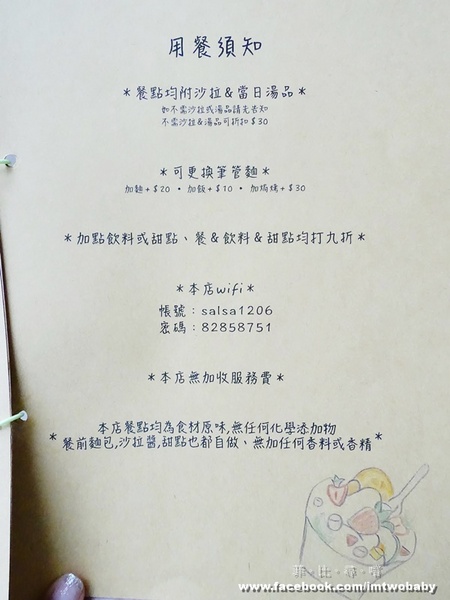 用餐須知
*餐點均附沙拉&當日湯品*
如不需沙拉或湯品請先告知
不需沙拉&湯品可折扣$30
*可更換筆管麵*
加麵+$20 • 加飯+$10 • 加焗烤+$30
*加點飲料或甜點、餐&飲料&甜點均打九折*
*本店wifi*
帳號:salsa1206
密碼:82858751
*本店無加收服務費*
本店餐點均為食材原味,無任何化學添加物
*餐前麵包,沙拉醬,甜點也都自做、無加任何香料或香精*
菲•比•尋•味
www.facebook.com/imtwobaby